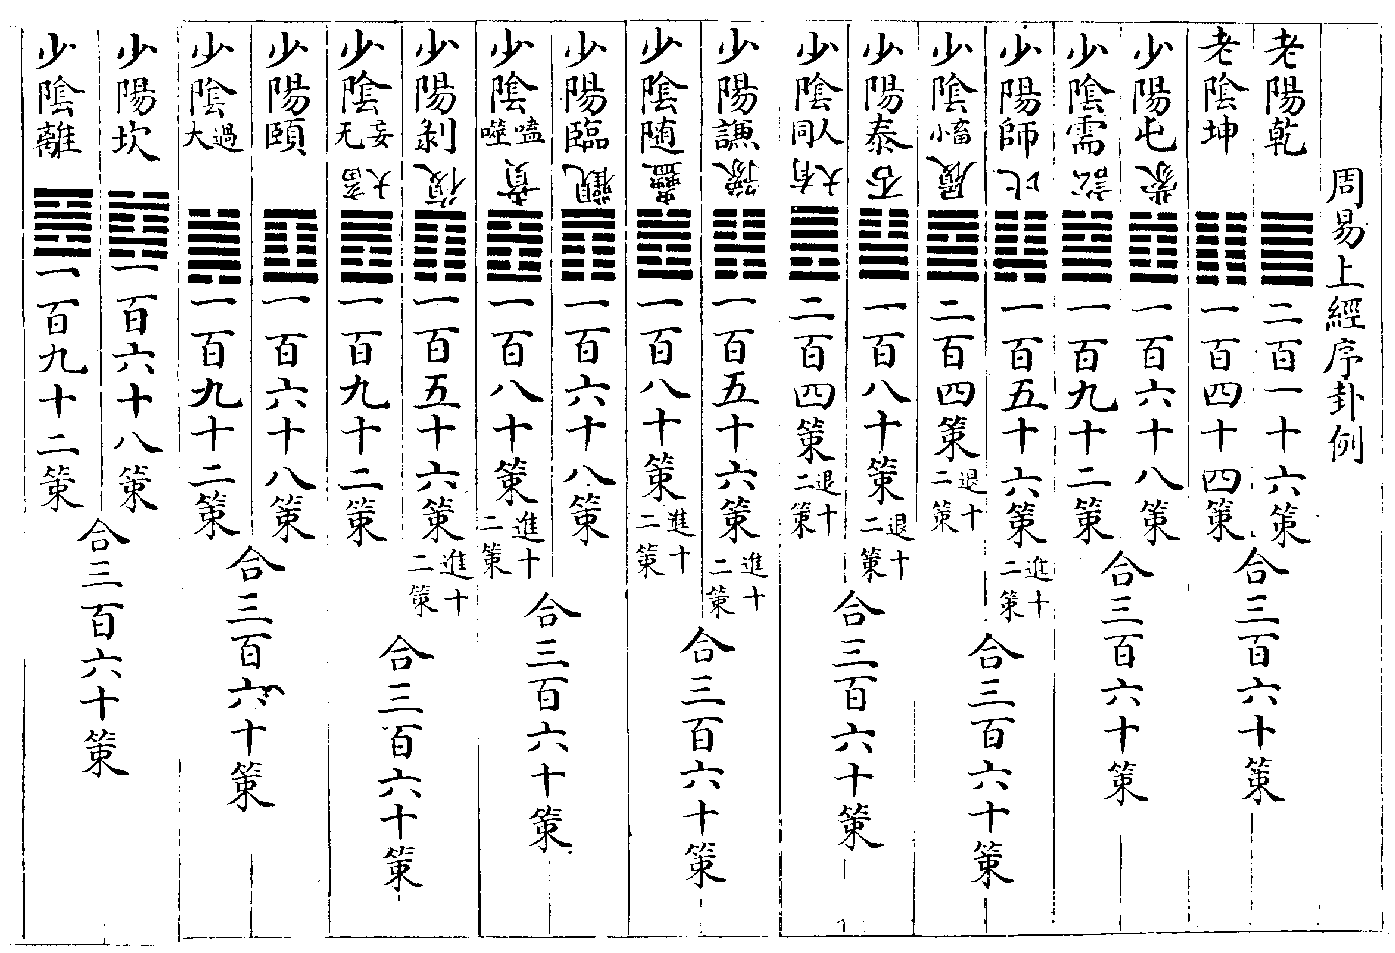 周易上經序卦例
老陽乾 二百一十六策
老陰坤 一百四十四策
合三百六十策
少陽屯蒙 一百六十八策
少陰需訟 一百九十二策
合三百六十策
少陽師比 一百五十六策進十二策
少陰小畜履 二百四策退十二策
合三百六十策
少陽泰否 一百八十策退十二策
少陰同人大有 二百四策退十二策
合三百六十策
少陽謙豫 一百五十六策進十二策
少陰随蠱 一百八十策進十二策
合三百六十策
少陽臨觀 一百六十八策
少陰噬嗑賁 一百八十策進十二策
合三百六十策
少陽剥復 一百五十六策進十二策
少陰无妄大畜 一百九十二策
合三百六十策
少陽頤 一百六十八策
少陰大過 一百九十二策
合三百六十策
少陽坎 一百六十八策
少陰離 一百九十二策
合三百六十策